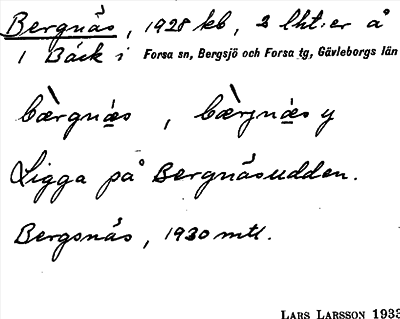 Bergnäs, 1928 kb, 2 lht:er å
1 Bäck i Forsa sn, Bergsjö och Forsa tg, Gävleborgs län
bæ̀rgnæs, bæ̀rjnæs y
Ligga på Bergnäsudden.
Bergsnäs, 1930 mtl.
LARS LARSSON 1933